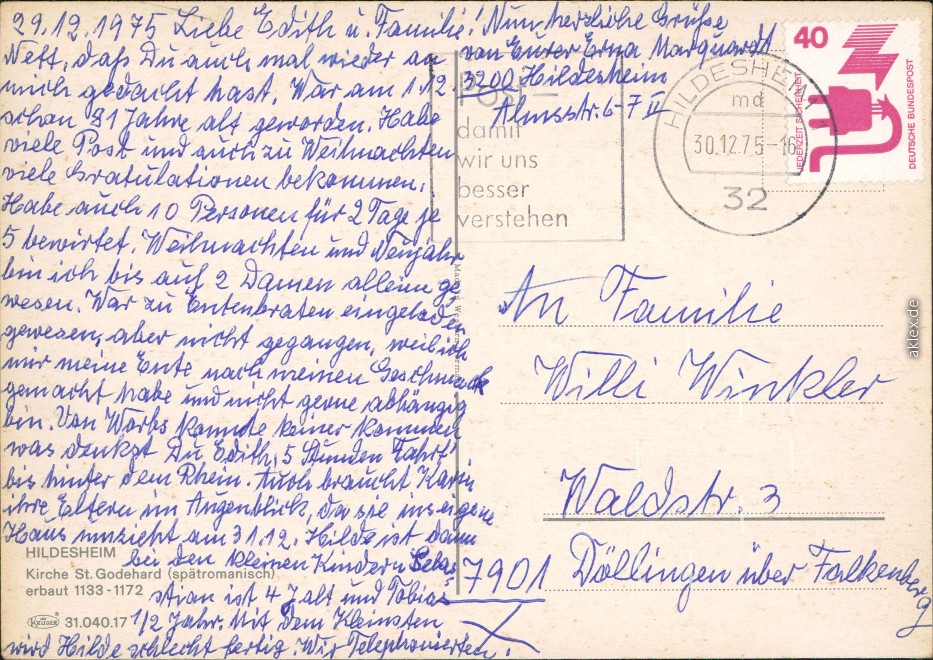 29.12.1975 Liebe Edith u. Familie!
Nett, daß Du auch mal wieder an
mich gedacht hast. War am 1.12.
schon 81 Jahre alt geworden. Habe
viele Post und auch zu Weihnachten
viele Gratulationen bekommen.
Habe auch 10 Personen für 2 Tage je
5 bewirtet. Weihnachten und Neujahr
bin ich bis auf 2 Damen allein ge
wesen. War zu Entenbraten eingeladen
gewesen, aber nicht gegangen, weil ich
mir meine Ente nach meinen Geschmack
gemacht habe und nicht gerne abhängig
bin. Von Worbs konnte keiner kommen
was denkst Du Edith, 5 Stunden Fahrt
bis hinter dem Rhein. Auch braucht Karin
ihre Eltern im Augenblick, da sie ins eigene
Haus umzieht am 31.12. Hilde ist dann
bei den kleinen Kindern Sebas
tian ist 4 J alt und Tobias
1/2 Jahr. Mit dem Kleinsten
wird Hilde schlecht fertig. Wir Telephonierten.
Nun herzliche Grüße
von Eurer Erna Marquardt
3200 Hildesheim
Almsstr. 6-7 II
HILDESHEIM
Kirche St. Godehard (spätromanisch)
erbaut 1133-1172
KRÜGER 31.040.17
damit
wir uns
besser
verstehen
HILDESHEIM
md
30.12.75-16
32
40
JEDERZEIT SICHERHEIT
DEUTSCHE BUNDESPOST
An Familie
Willi Winkler
Waldstr. 3
7901 Döllingen über Falkenberg
aklex.de